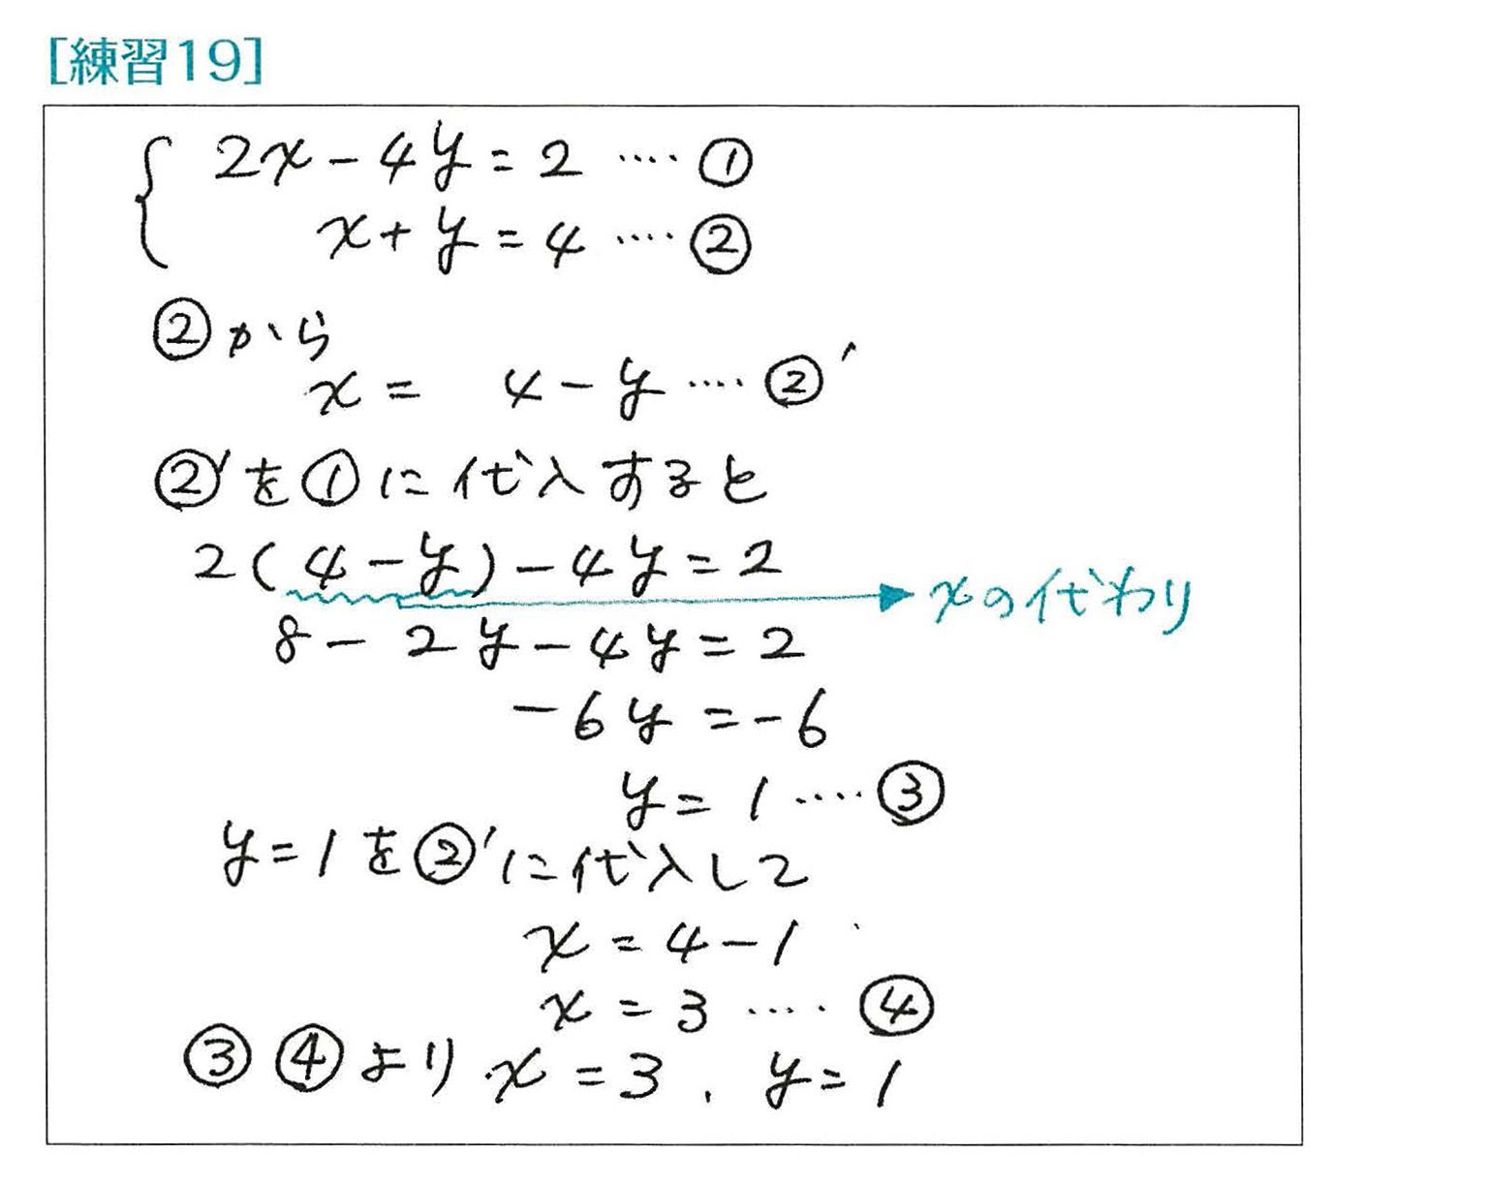 [練習19]
2x-4y=2 ····①
x+y=4 ····②
②から
x= 4-y ····②′
②′を①に代入すると
2(4-y)-4y=2
xの代わり
8-2y-4y=2
-6y=-6
y=1 ····③
y=1を②′に代入して
x=4-1
x=3 ····④
③④より x=3, y=1